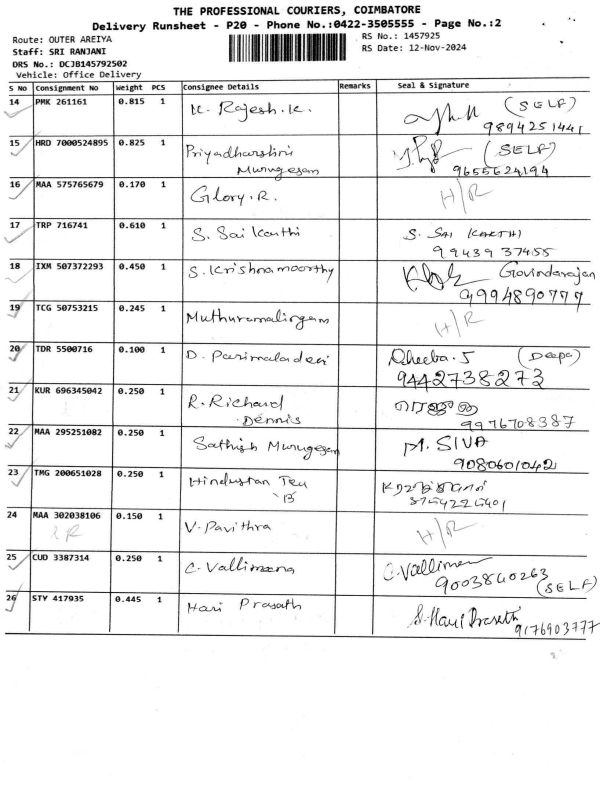 THE PROFESSIONAL COURIERS, COIMBATORE
Delivery Runsheet - P20 - Phone No.:0422-3505555 - Page No.:2
Route: OUTER AREIYA
RS No.: 1457925
Staff: SRI RANJANI
RS Date: 12-Nov-2024
DRS No.: DCJB145792502
Vehicle: Office Delivery
S No Consignment No Weight PCS Consignee Details Remarks Seal & Signature
14 PMK 261161 0.815 1 K. Rajesh.K. (SELF)
9894251441
15 HRD 7000524895 0.825 1 Priyadharshini (SELF)
Murugesan 9655624194
16 MAA 575765679 0.170 1 Glory.R. H/R
17 TRP 716741 0.610 1 S. Sai Karthi S. SAI KARTHI
99439 37455
18 IXM 507372293 0.450 1 S. Krishnamoorthy Govindarajan
9994890777
19 TCG 50753215 0.245 1 Muthuramalingam H/R
20 TDR 5500716 0.100 1 D. Parimaladevi Dheeba.J (Deepa)
9442738273
21 KUR 696345042 0.250 1 R. Richard
Dennis 9976708387
22 MAA 295251082 0.250 1 Sathish Murugesan M. SIVA
9080601042
23 TMG 200651028 0.250 1 Hindustan Tea
24 MAA 302038106 0.150 1 V. Pavithra H/R
25 CUD 3387314 0.250 1 C. Vallimeena C. Vallimee
9003840263
(SELF)
26 STY 417935 0.445 1 Hari Prasath S. Hari Prasath
9176903777